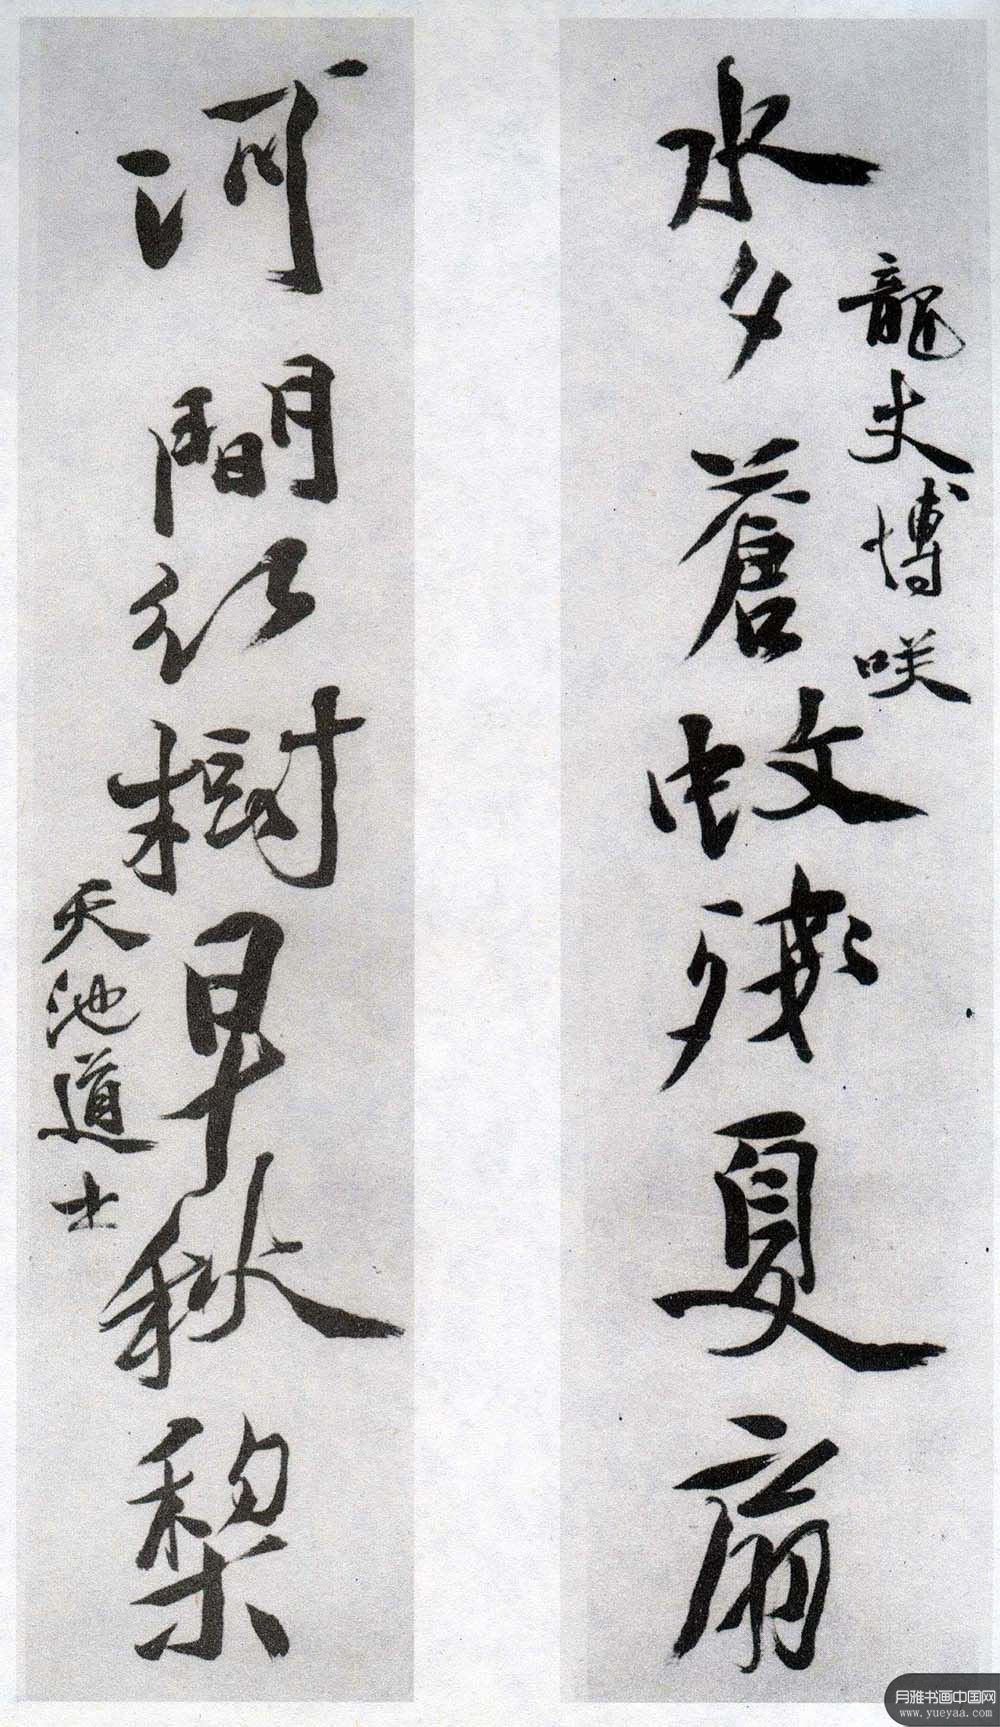 龍丈博咲
水夕蒼蚊殘夏扇
河間紅樹早秋梨
天池道士
月雅书画中国网
www.yueyaa.com